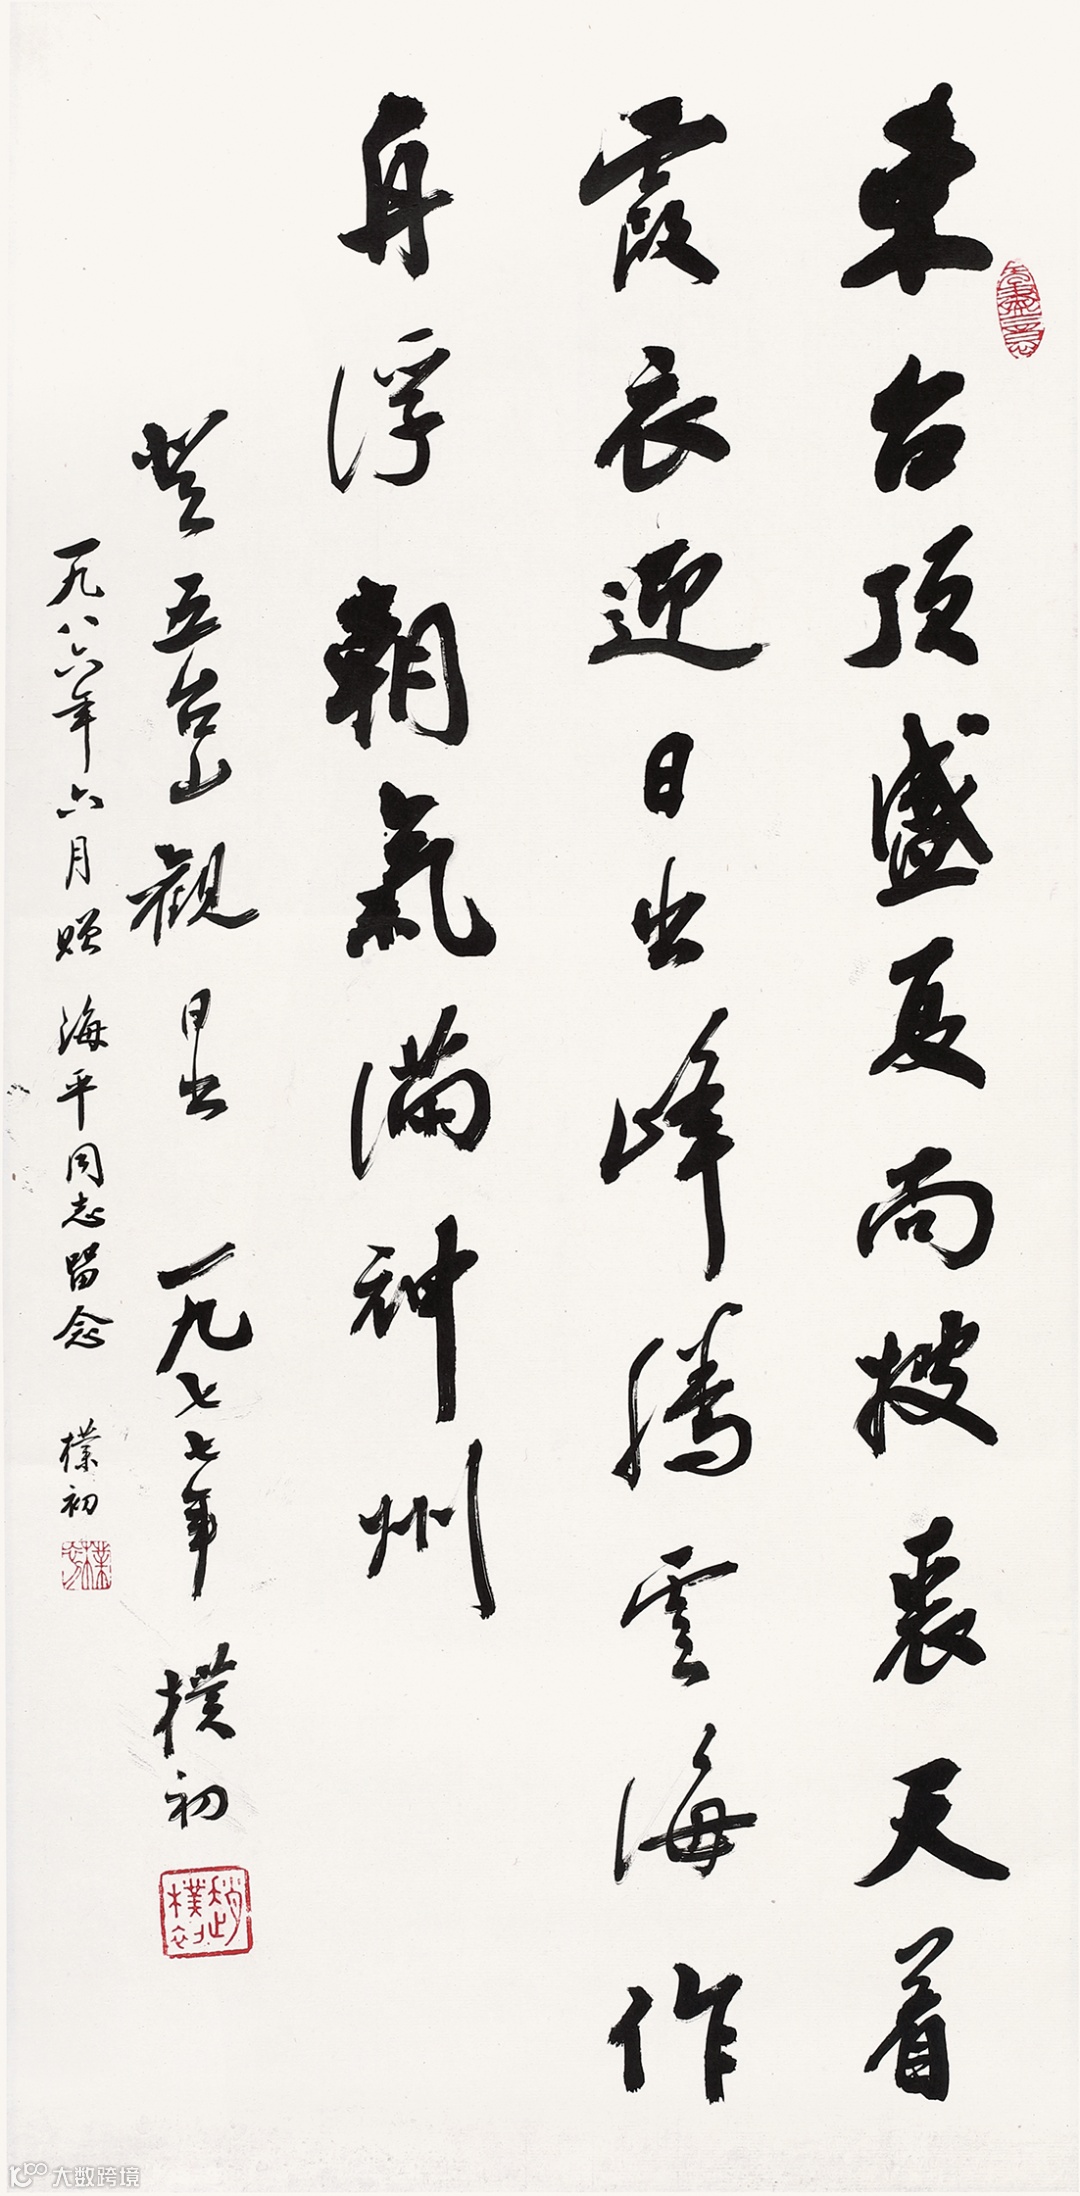 東台頂盛夏尚披裘天著
霞衣迎日出峰騰雲海作
舟浮朝氣滿神州
登五台山觀日出 一九七七年 樸初
一九八六年六月贈 海平同志留念 樸初
趙樸初
樸初
大数跨境